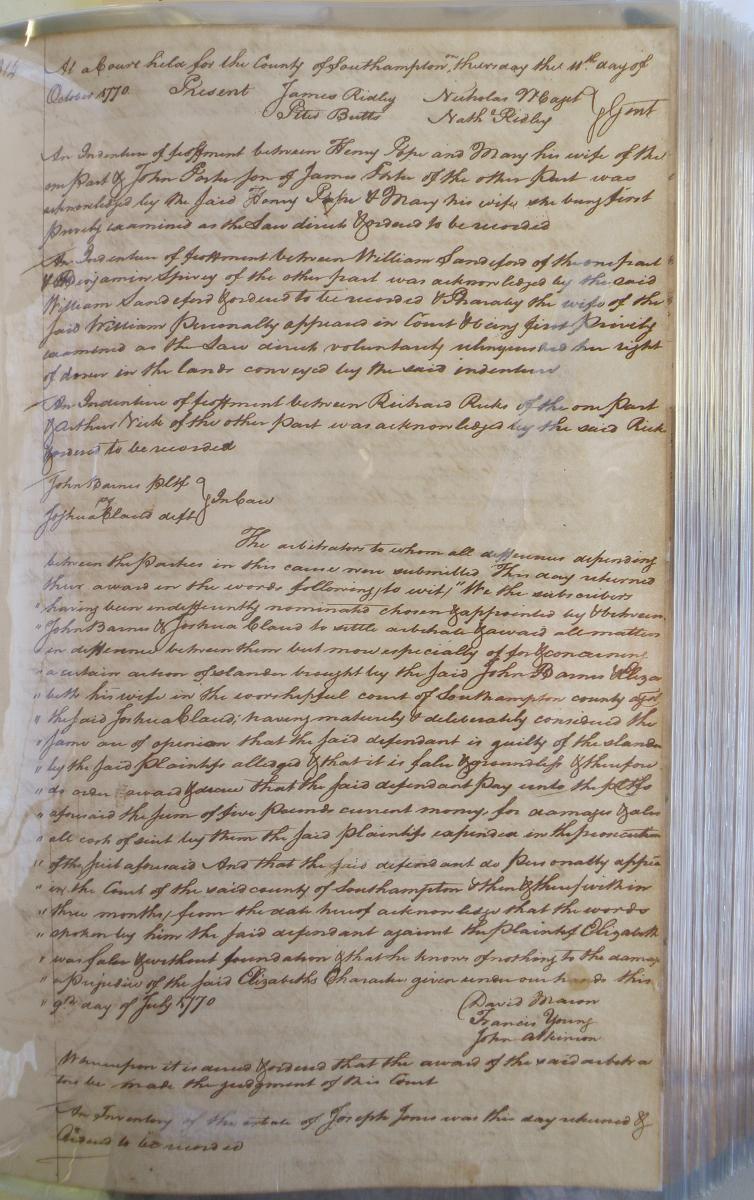 At a Court held for the County of Southampton thursday the 11th day of
October 1770 Present James Ridley Nicholas Maget
Peter Butts Nath.l Ridley Gent
An Indenture of feoffment between Henry Pope and Mary his wife of the
one part & John Porter son of James Porter of the other Part was
acknowledged by the said Henry Pope & Mary his wife she being first
privily examined as the Law direct & ordered to be recorded
An Indenture of feoffment between William Sandeford of the one part
& Benjamin Spivey of the other part was acknowledged by the said
William Sandeford & ordered to be recorded & Pharaby the wife of the
said William Personally appeared in Court & being first Privily
examined as the Law direct voluntarily relinquished her right
of dower in the lands conveyed by the said indenture
An Indenture of feoffment between Richard Ricks of the one Part
& Arthur of the other Part was acknowledged by the said Rick
& ordered to be recorded
John Barnes pltf
In Case
Joshua Claud deft
The arbitrators to whom all differences depending
between the Parties in this cause were submitted This day returned
their award in the words following, to wit, "We the subscribers
" having been indifferently nominated chosen & appointed by & between
" John Barnes & Joshua Claud to settle arbitrate & award all matters
in difference between them but more especially of for & concerning
" a certain action of slander brought by the said John Barnes & Eliza
" beth his wife in the worshipful court of Southampton county agst
" the said Joshua Claud; having maturely & deliberately considered the
" same are of opinion that the said defendant is guilty of the slander
" by the said Plaintiffs alledged & that it is false & groundless & therefore
" do order award & decree that the said defendant Pay unto the pltfs
" aforesaid the sum of five Pounds current money, for damages & also
" all cost of suit by them the said Plaintiffs expended in the prosecution
" of the suit aforesaid And that the said defendant do Personally appear
" in the Court of the said county of Southampton & then & there, within
" three months, from the date hereof acknowledge that the words
" spoken by him the said defendant against the Plaintiff Elizabeth
" was false & without foundation & that he knows of nothing to the damage
" a Prejudice of the said Elizabeths Character given under our hands this
" 9th day of July 1770 David Mason
Francis Young
John Atkinson
Whereupon it is & ordered that the award of the said arbitra
tors be made the judgment of this Court
An Inventory of the estate of Joseph Jones was this day returned &
Ordered to be recorded